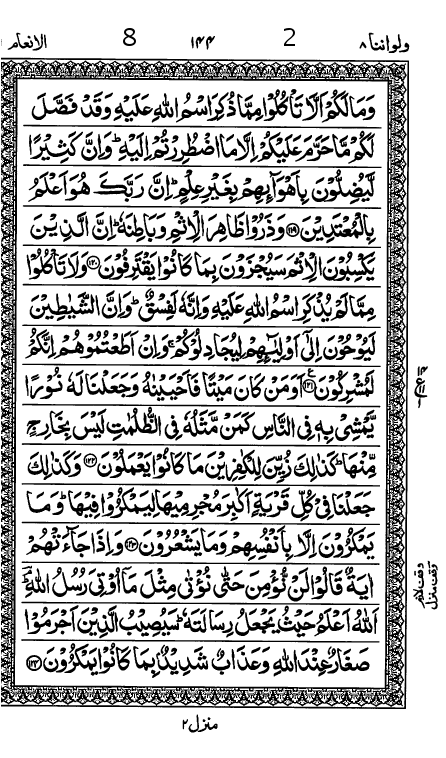 ولو اننا ٨ 2 ١٤٤ 8 الانعام
وَمَا لَكُمْ اَلَّا تَاْكُلُوْا مِمَّا ذُكِرَ اسْمُ اللّٰهِ عَلَيْهِ وَقَدْ فَصَّلَ
لَكُمْ مَّا حَرَّمَ عَلَيْكُمْ اِلَّا مَا اضْطُرِرْتُمْ اِلَيْهِ ؕ وَاِنَّ كَثِيْرًا
لَّيُضِلُّوْنَ بِاَهْوَآئِهِمْ بِغَيْرِ عِلْمٍ ؕ اِنَّ رَبَّكَ هُوَ اَعْلَمُ
بِالْمُعْتَدِيْنَ ﴿١١٩﴾ وَذَرُوْا ظَاهِرَ الْاِثْمِ وَبَاطِنَهٗ ؕ اِنَّ الَّذِيْنَ
يَكْسِبُوْنَ الْاِثْمَ سَيُجْزَوْنَ بِمَا كَانُوْا يَقْتَرِفُوْنَ ﴿١٢٠﴾ وَلَا تَاْكُلُوْا
مِمَّا لَمْ يُذْكَرِ اسْمُ اللّٰهِ عَلَيْهِ وَاِنَّهٗ لَفِسْقٌ ؕ وَاِنَّ الشَّيٰطِيْنَ
لَيُوْحُوْنَ اِلٰٓى اَوْلِيٰٓئِهِمْ لِيُجَادِلُوْكُمْ ۚ وَاِنْ اَطَعْتُمُوْهُمْ اِنَّكُمْ
لَمُشْرِكُوْنَ ﴿١٢١﴾ اَوَمَنْ كَانَ مَيْتًا فَاَحْيَيْنٰهُ وَجَعَلْنَا لَهٗ نُوْرًا
يَّمْشِيْ بِهٖ فِى النَّاسِ كَمَنْ مَّثَلُهٗ فِى الظُّلُمٰتِ لَيْسَ بِخَارِجٍ
مِّنْهَا ؕ كَذٰلِكَ زُيِّنَ لِلْكٰفِرِيْنَ مَا كَانُوْا يَعْمَلُوْنَ ﴿١٢٢﴾ وَكَذٰلِكَ
جَعَلْنَا فِيْ كُلِّ قَرْيَةٍ اَكٰبِرَ مُجْرِمِيْهَا لِيَمْكُرُوْا فِيْهَا ؕ وَمَا
يَمْكُرُوْنَ اِلَّا بِاَنْفُسِهِمْ وَمَا يَشْعُرُوْنَ ﴿١٢٣﴾ وَاِذَا جَآءَتْهُمْ
اٰيَةٌ قَالُوْا لَنْ نُّؤْمِنَ حَتّٰى نُؤْتٰى مِثْلَ مَآ اُوْتِيَ رُسُلُ اللّٰهِ ؔۘ
اَللّٰهُ اَعْلَمُ حَيْثُ يَجْعَلُ رِسَالَتَهٗ ؕ سَيُصِيْبُ الَّذِيْنَ اَجْرَمُوْا
صَغَارٌ عِنْدَ اللّٰهِ وَعَذَابٌ شَدِيْدٌۢ بِمَا كَانُوْا يَمْكُرُوْنَ ﴿١٢٤﴾
منزل ٢